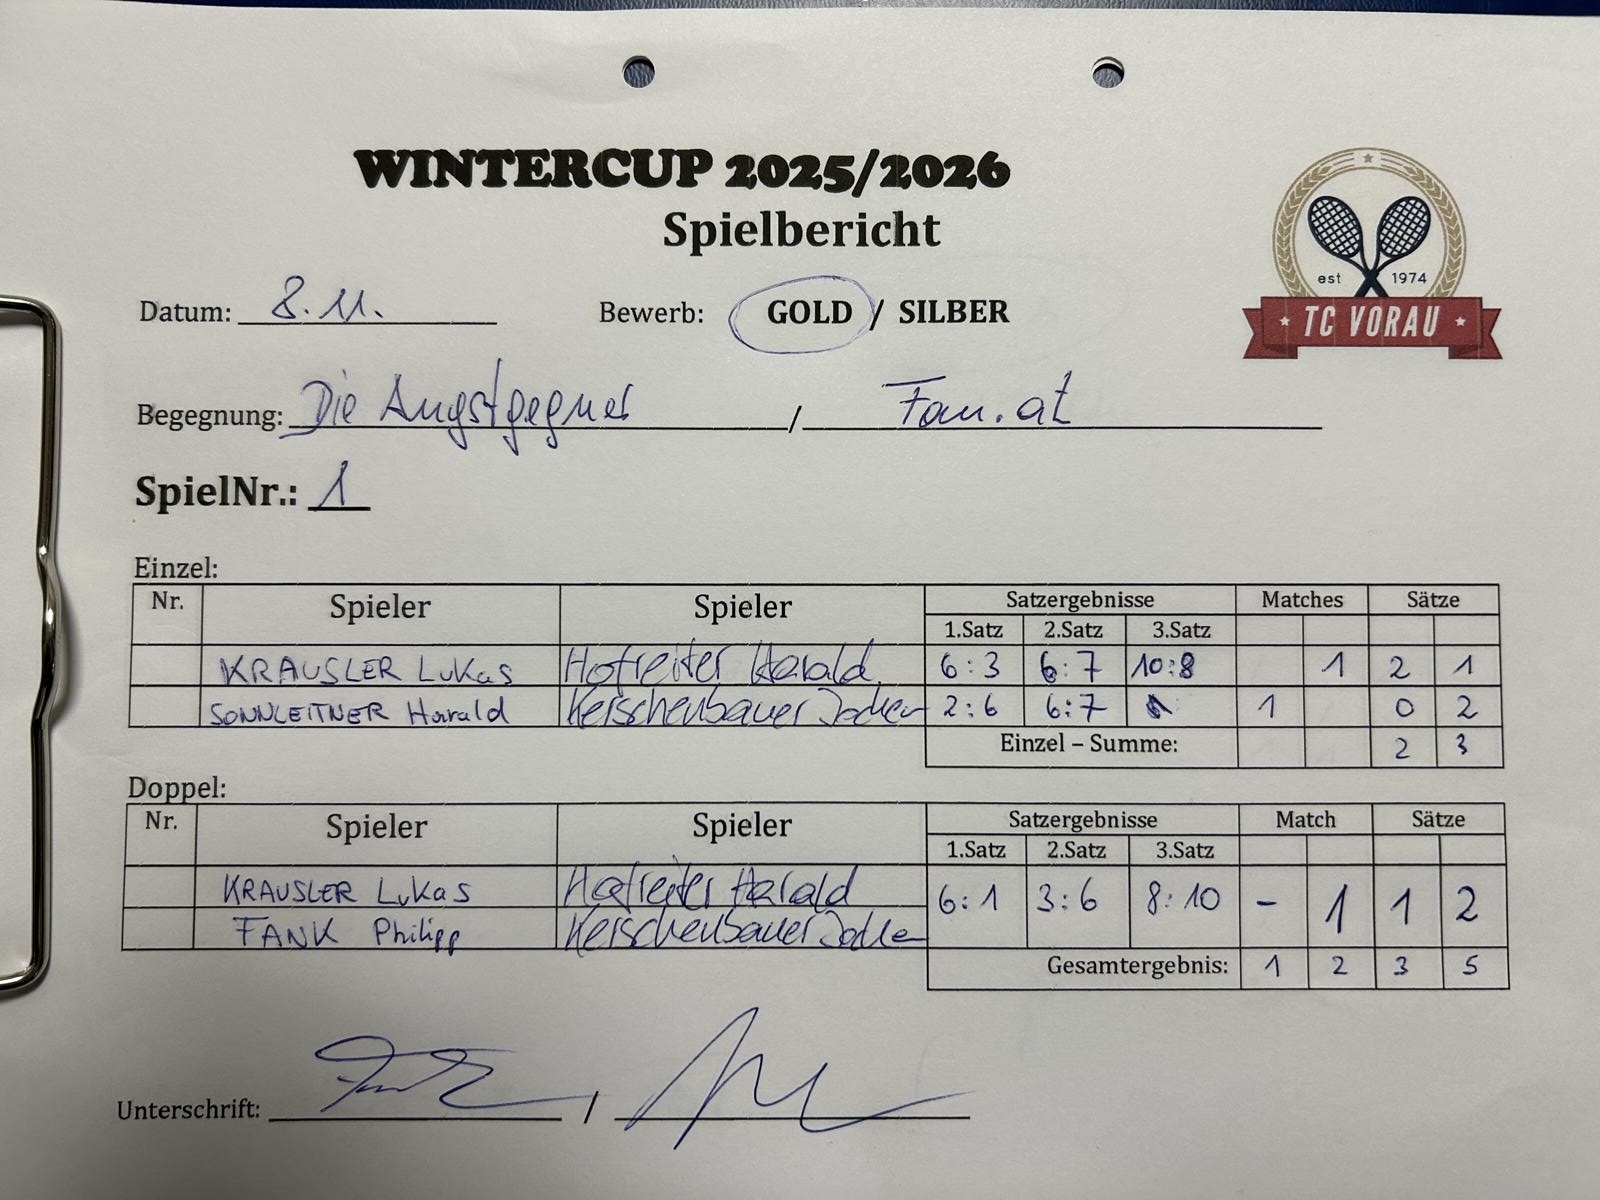 WINTERCUP 2025/2026
Spielbericht
est 1974
TC VORAU
Datum: 8.11. Bewerb: GOLD / SILBER
Begegnung: Die Angstgegner / Fan.at
SpielNr.: 1
Einzel:
Nr. Spieler Spieler Satzergebnisse Matches Sätze
1.Satz 2.Satz 3.Satz
KRAUSLER Lukas Hofreiter Harald 6:3 6:7 10:8 1 2 1
SONNLEITNER Harald Kerschenbauer Jochen 2:6 6:7 1 0 2
Einzel – Summe: 2 3
Doppel:
Nr. Spieler Spieler Satzergebnisse Match Sätze
1.Satz 2.Satz 3.Satz
KRAUSLER Lukas Hofreiter Harald 6:1 3:6 8:10 - 1 1 2
FANK Philipp Kerschenbauer Jochen
Gesamtergebnis: 1 2 3 5
Unterschrift: /